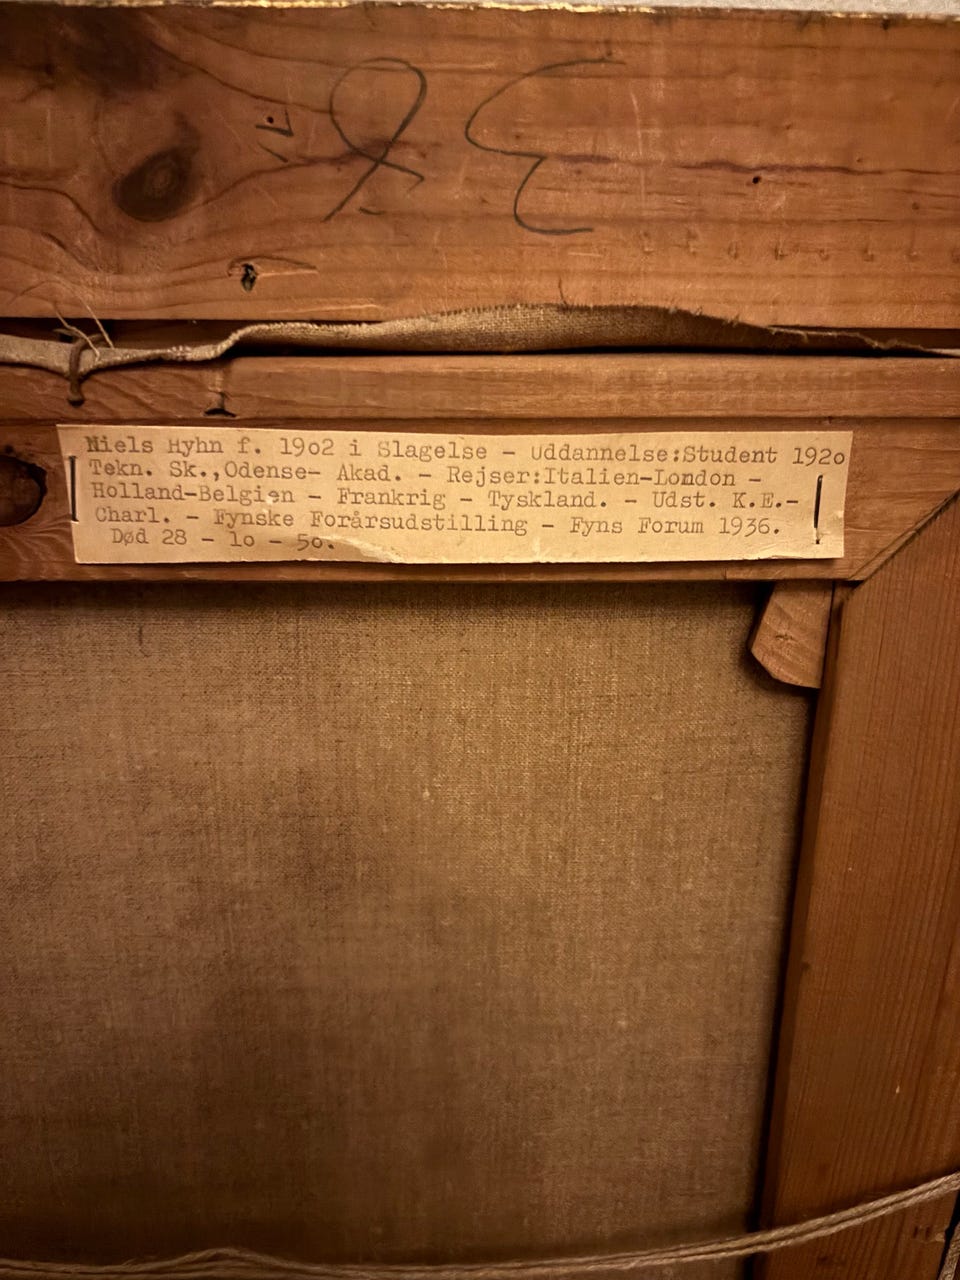 Niels Hyhn f. 19o2 i Slagelse - Uddannelse:Student 192o
Tekn. Sk.,Odense- Akad. - Rejser:Italien-London -
Holland-Belgien - Frankrig - Tyskland. - Udst. K.E.-
Charl. - Fynske Forårsudstilling - Fyns Forum 1936.
Død 28 - 1o - 5o.